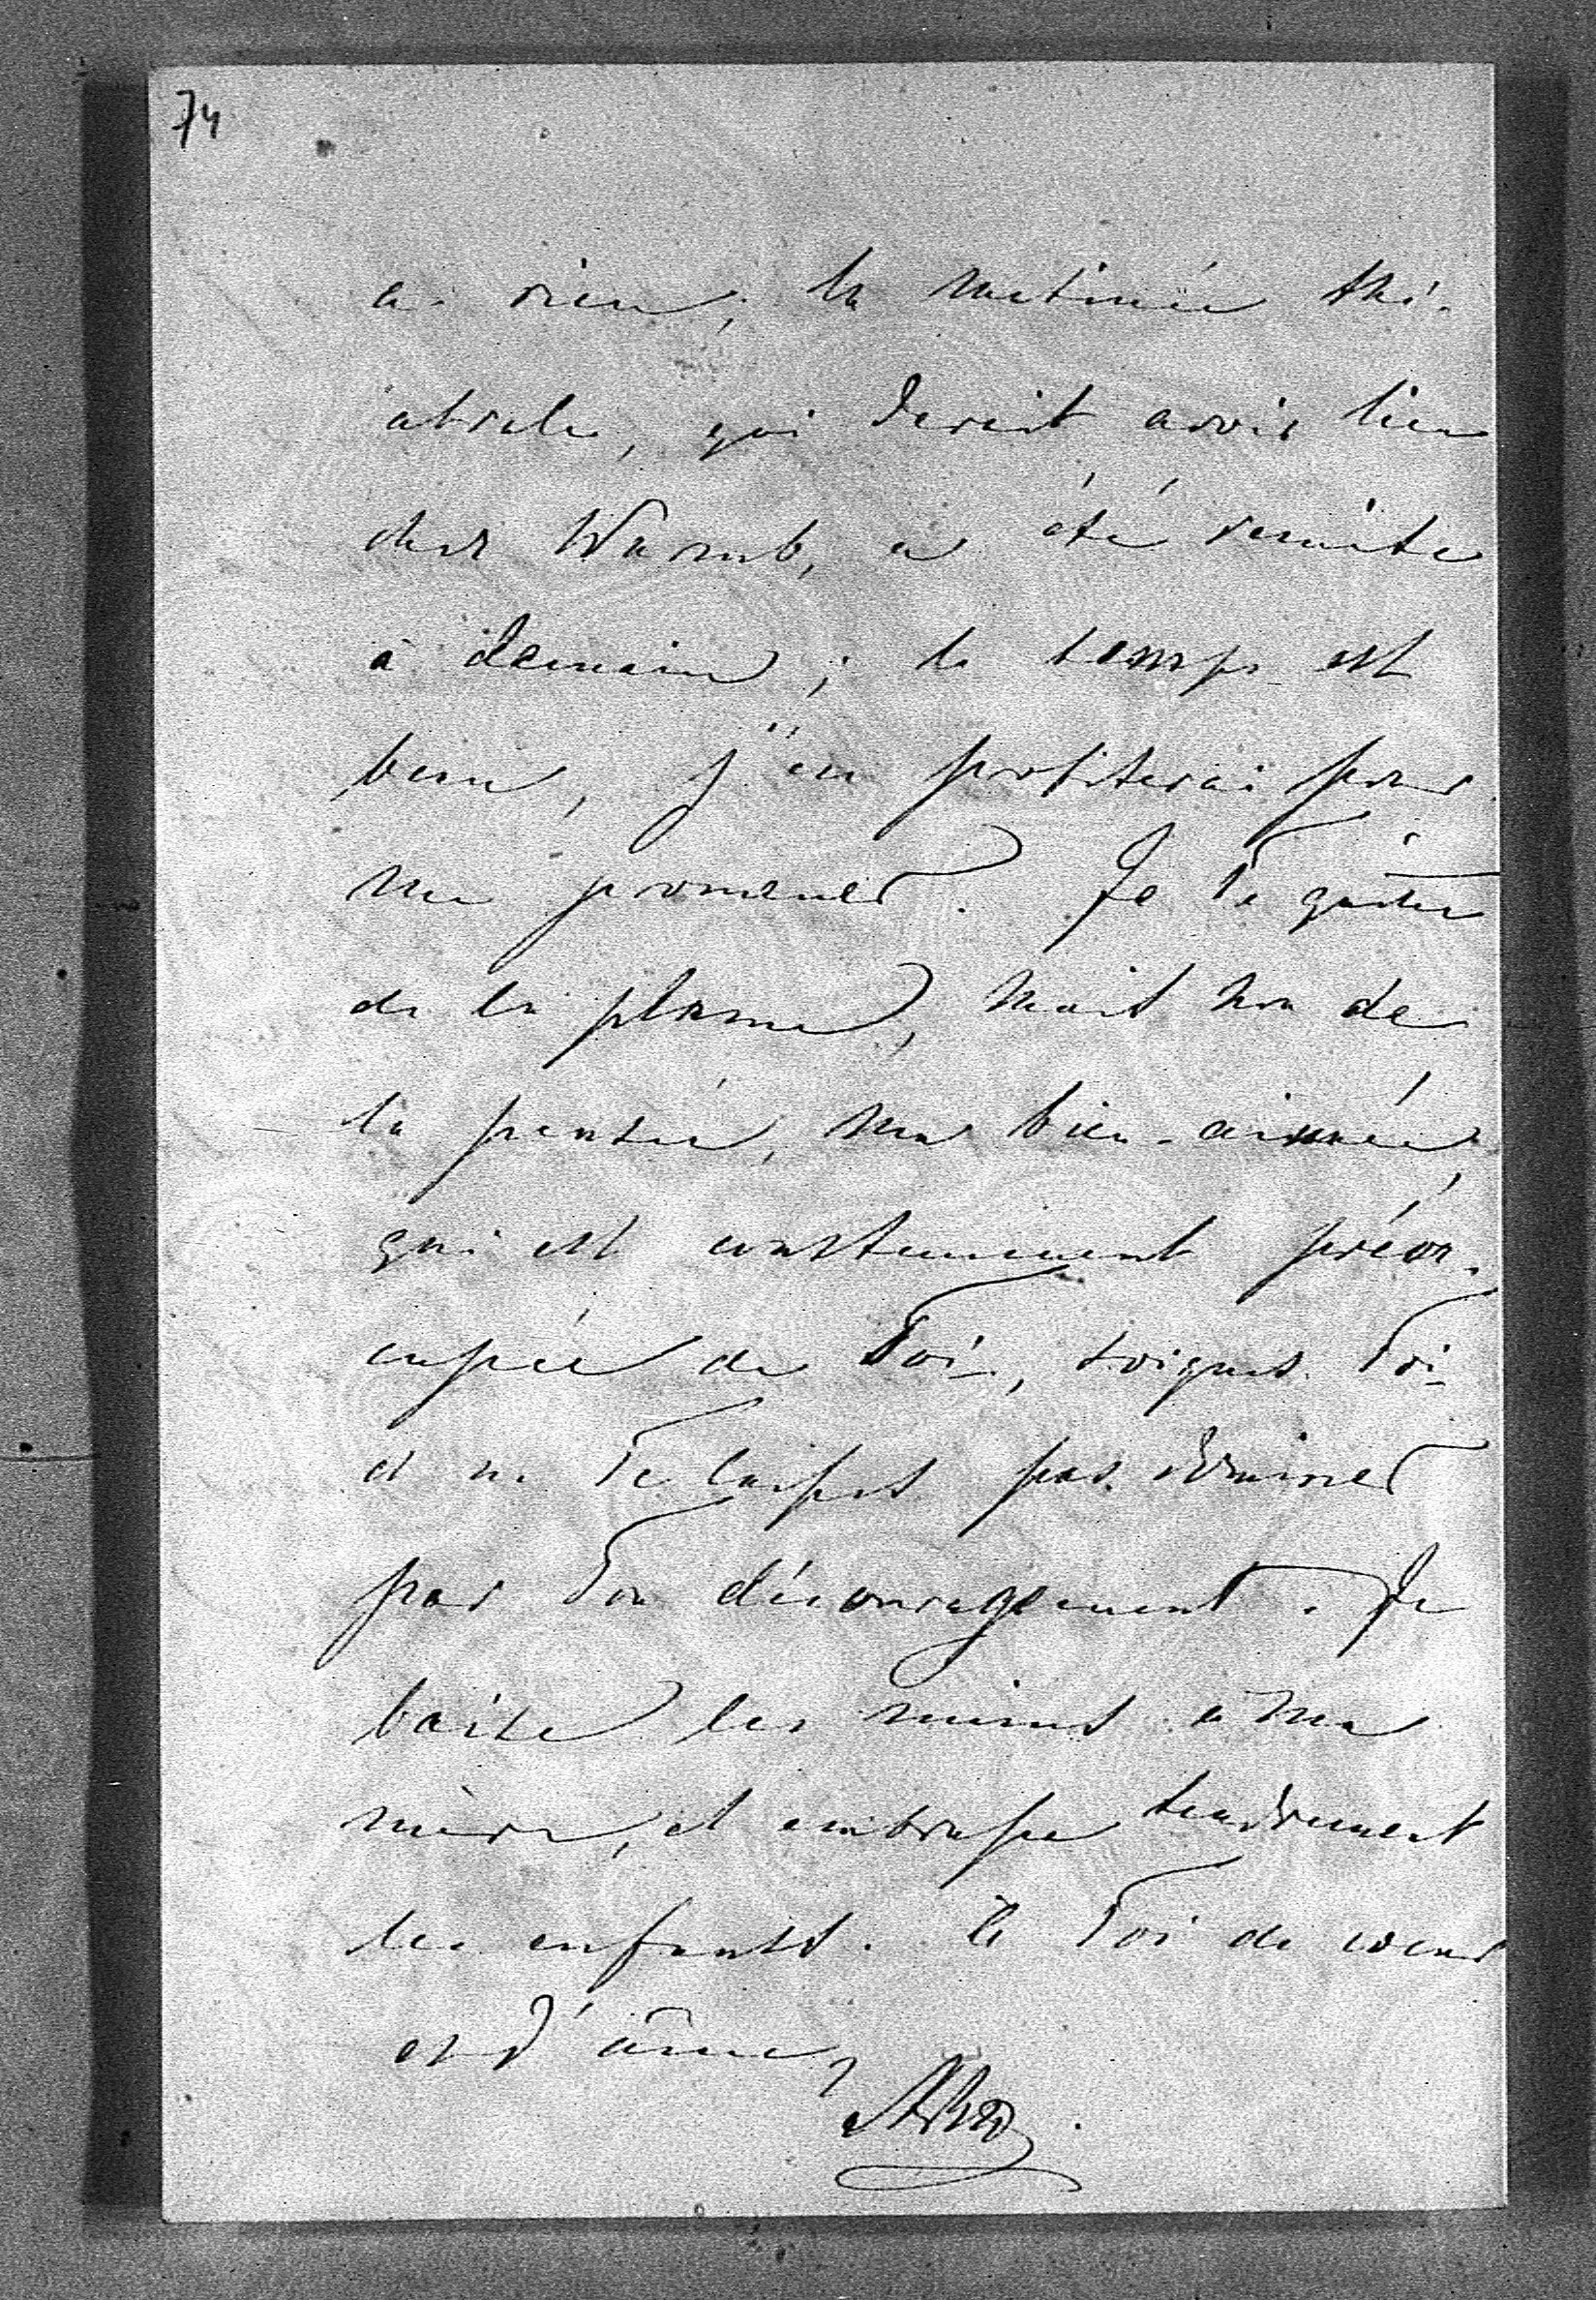 74
a rien, la matinée thé-
atrale, qui devait avoir lieu
chez Wurmb, a été remise
à demain; le temps est
beau, j'en profiterai pour
me promener. Je Te quitte
de la plume, mais non de
la pensée, ma bien-aimée,
qui est constamment préoc-
cupée de Toi, soignes Toi
et ne Te laisses pas dominer
par Ton découragement. Je
baise les mains à ma
mère, et embrasse tendrement
les enfants. à Toi de coeur
et d'âme,